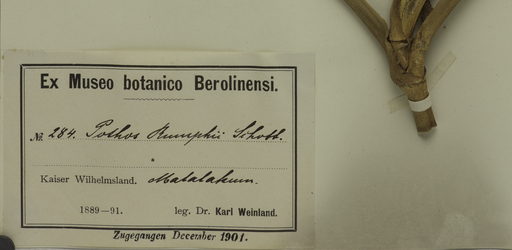 Ex Museo botanico Berolinensi.
No. 284. Pothos Rumphii Schott.
Kaiser Wilhelmsland. Matalakum.
1889—91. leg. Dr. Karl Weinland.
Zugegangen December 1901.